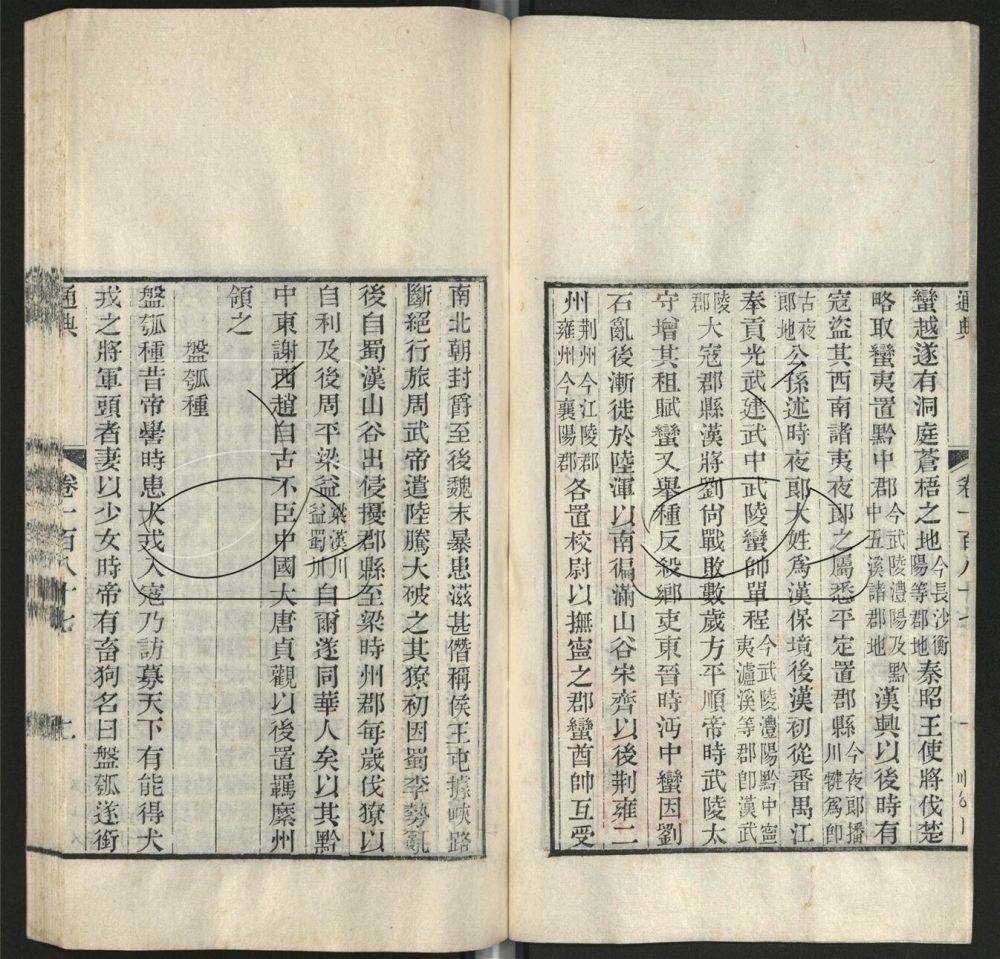 通典
卷一百八十七
蠻越遂有洞庭蒼梧之地今長沙衡陽等郡地秦昭王使將伐楚
略取蠻夷置黔中郡今武陵澧陽及黔中五溪諸郡地漢興以後時有
寇盜其西南諸夷夜郎之屬悉平定置郡縣今夜郎播川犍爲卽
古夜郎地公孫述時夜郎大姓爲漢保境後漢初從番禺江
奉貢光武建武中武陵蠻帥單程今武陵澧陽黔中寧夷瀘溪等郡卽漢武
陵郡大寇郡縣漢將劉尙戰敗數歲方平順帝時武陵太
守增其租賦蠻又舉種反殺鄉吏東晉時沔中蠻因劉
石亂後漸徙於陸渾以南徧滿山谷宋齊以後荆雍二
州荆州今江陵郡雍州今襄陽郡各置校尉以撫寧之郡蠻酋帥互受
南北朝封爵至後魏末暴患滋甚僭稱侯王屯據峽路
斷絕行旅周武帝遣陸騰大破之其獠初因蜀李勢亂
後自蜀漢山谷出侵擾郡縣至梁時州郡每歲伐獠以
自利及後周平梁益梁漢川益蜀川自爾遂同華人矣以其黔
中東謝西趙自古不臣中國大唐貞觀以後置羈縻州
領之
盤瓠種
盤瓠種昔帝嚳時患犬戎入寇乃訪募天下有能得犬
戎之將軍頭者妻以少女時帝有畜狗名曰盤瓠遂銜
通典
卷一百八十七